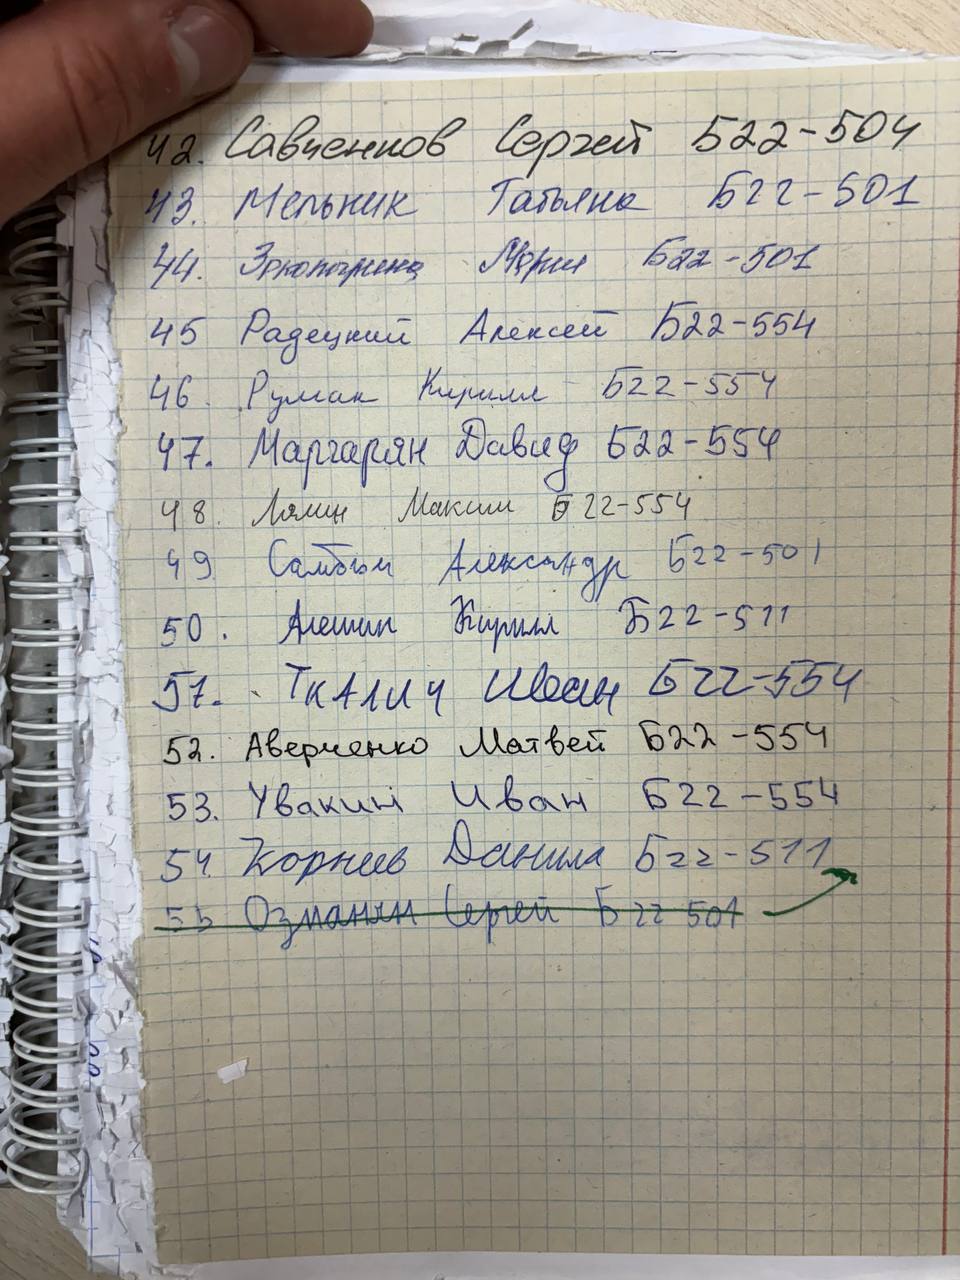 42. Савченков Сергей Б22-504
43. Мельник Татьяна Б22-501
44. Мария Б22-501
45 Радецкий Алексей Б22-554
46. Румак Кирилл Б22-554
47. Маргарян Давид Б22-554
48. Лямин Максим Б22-554
49 Александр Б22-501
50. Алешин Кирилл Б22-511
51. Ткалич Иван Б22-554
52. Аверченко Матвей Б22-554
53. Увакин Иван Б22-554
54. Корнев Данила Б22-511
55 Озманян Сергей Б22 501